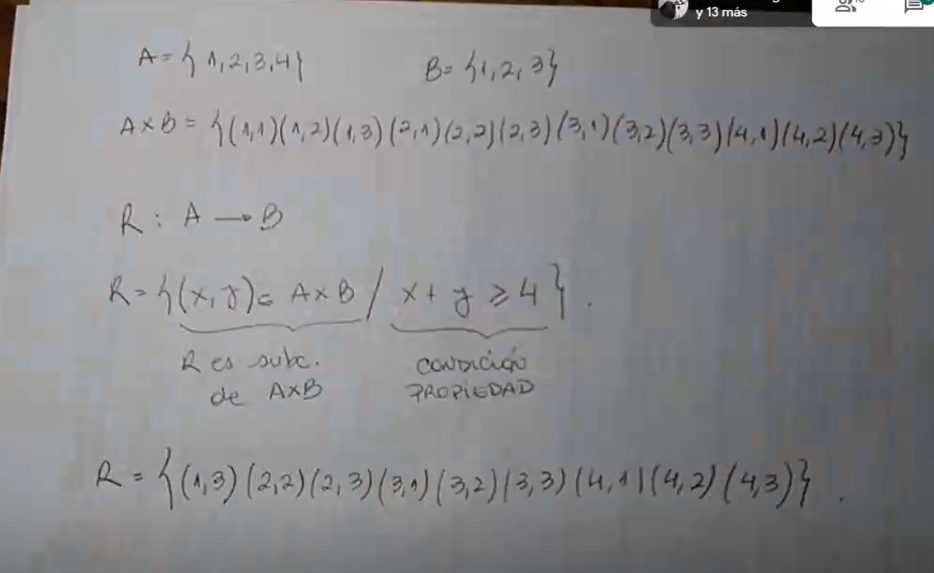 y 13 más
A = { 1, 2, 3, 4 } B = { 1, 2, 3 }
A × B = { (1,1) (1,2) (1,3) (2,1) (2,2) (2,3) (3,1) (3,2) (3,3) (4,1) (4,2) (4,3) }
R : A → B
R = { (x, y) ∈ A×B / x + y ≥ 4 } .
R es subc. CONDICIÓN
de A×B PROPIEDAD
R = { (1,3) (2,2) (2,3) (3,1) (3,2) (3,3) (4,1) (4,2) (4,3) } .